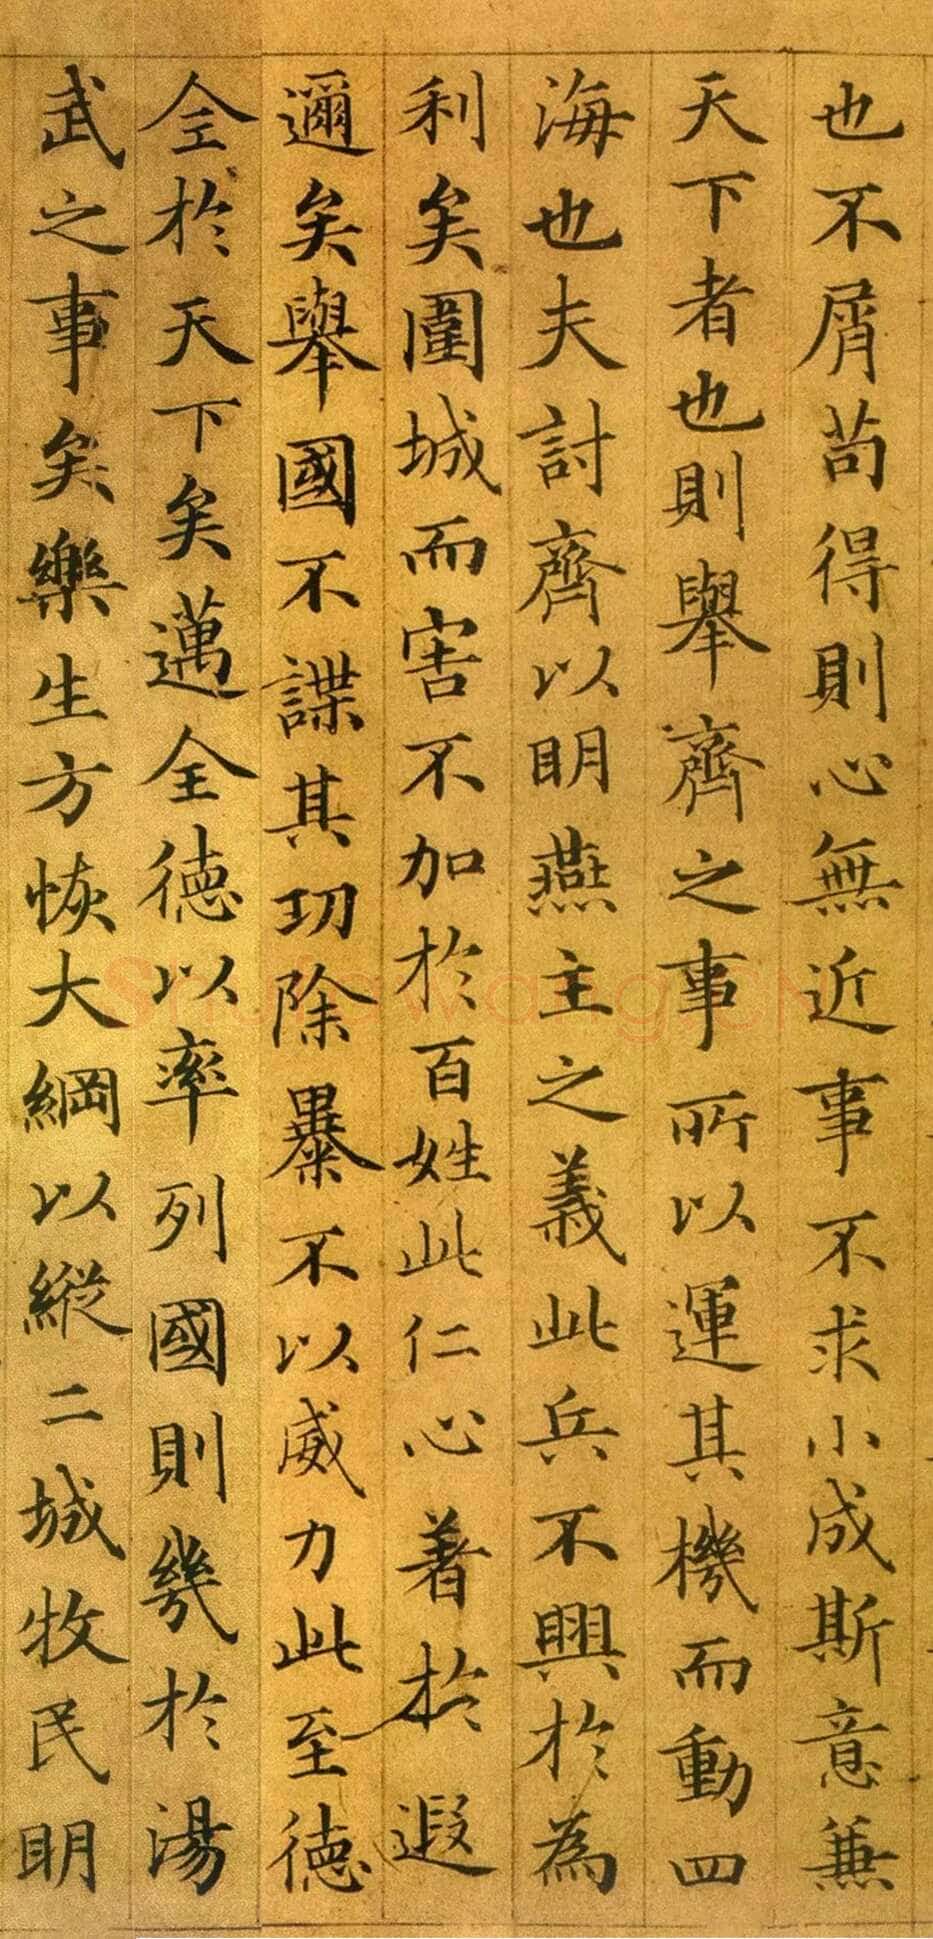 也不屑苟得則心無近事不求小成斯意兼
天下者也則舉齊之事所以運其機而動四
海也夫討齊以明燕主之義此兵不興於為
利矣圍城而害不加於百姓此仁心著於遐
邇矣舉國不謀其功除暴不以威力此至德
全於天下矣邁全德以率列國則幾於湯
武之事矣樂生方恢大綱以縱二城牧民明
Shufawang.CN